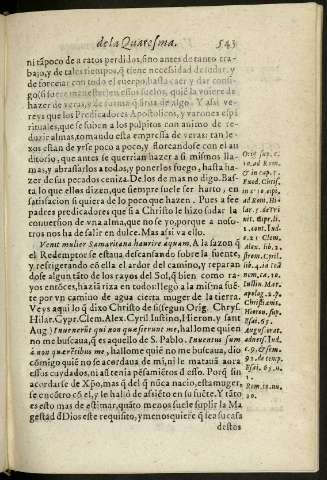 de la Quaresma. 543
ni tãpoco de a ratos perdidos, sino antes de tanto tra-
bajo, y de tales tiempos, q̃ tiene necesidad de sudar, y
de forcejar con todo el cuerpo, hasta caer y dar consi-
go (si fuere menester) en essos suelos, quiẽ la vuiere de
hazer de veras, y de forma q̃ sirua de algo. Y assi ve-
reys que los Predicadores Apostolicos, y varones espi
rituales, que se suben a los pulpitos con animo de re-
duzir almas, tomando esta empressa de veras: tan le-
xos estan de yrse poco a poco, y floreandose con el au
ditorio, que antes se querrian hazer a si mismos lla-
mas, y abrasarlos a todos, y ponerles fuego, hasta ha-
zer de sus pecados ceniza. De los de mas no digo. Bas
ta lo que ellos dizen, que siempre suele ser harto, en
satisfacion si quiera de lo poco que hazen. Pues a fee
padres predicadores que si a Christo le hizo sudar la
conuersion de vna alma, que no se yo, porque a noso-
tros nos ha de salir en dulce. Mas si va ello.
Venit mulier Samaritana haurire aquam. A la sazon q̃
el Redemptor se estaua descansando sobre la fuente,
y resfrigerando eñ ella el ardor del camino, y reparan
dose algun tãto de los rayos del Sol, q̃ bien como ra-
yos entõces, hazia riza en todos: llegò a la misma fuẽ
te por vn camino de agua cierta muger de la tierra.
Veys aqui lo q̃ dixo Christo de si: segun Orig. Chrys.
Hilar. Cypr. Clem. Alex. Cyril. Iustino, Hieron. y sant
Aug.) Inuenerũt qui non quæsierunt me, hallome quien
no me buscaua, q̃ es aquello de S. Pablo. Inuentus sum
à non quærẽtibus me, hallome quiẽ no me buscaua, dio
cõmigo quiẽ no se acordaua de mi, ni le mataua âora
essos cuydados, ni assi tenia pẽsamiẽtos d̃ esso. Porq̃ sin
acordarse de Xp̃o, mas q̃ del q̃ nũca nacio, esta muger
se encõtro cõ el, y le halló de assiẽto en su fuẽte. Y tãto
es esto mas de estimar, quãto menos suele suplir la Ma
gestad d̃ Dios este requisito, y menos quiere q̃ lea su casa
destos
Orig. sup. c.
10. ad Rom.
& in cap. 5.
ad Rom. Hi
Alex. lib. 2.
strom. Cyril.
Iustin. Mar.
apolog. 2. p.
Christianis,
Hieron. sup.
Esai. 65.
August. tract.
Esai. 65. 1.
Rom. 10. nu.
20.